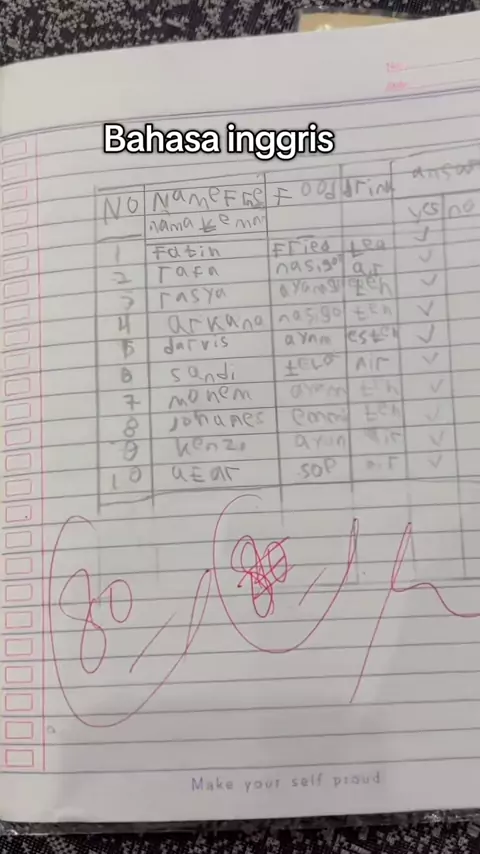 Bahasa inggris
NO Name Food drink
nama yes no
1 Fatin Fried tea
2 rafa nasigor air
3 rasya teh
4 arkana nasigo teh
5 darvis ayam esteh
6 sandi air
7 ayam teh
8 Johanes teh
9 kenzo air
10 SOP air
80
80
Make your self proud